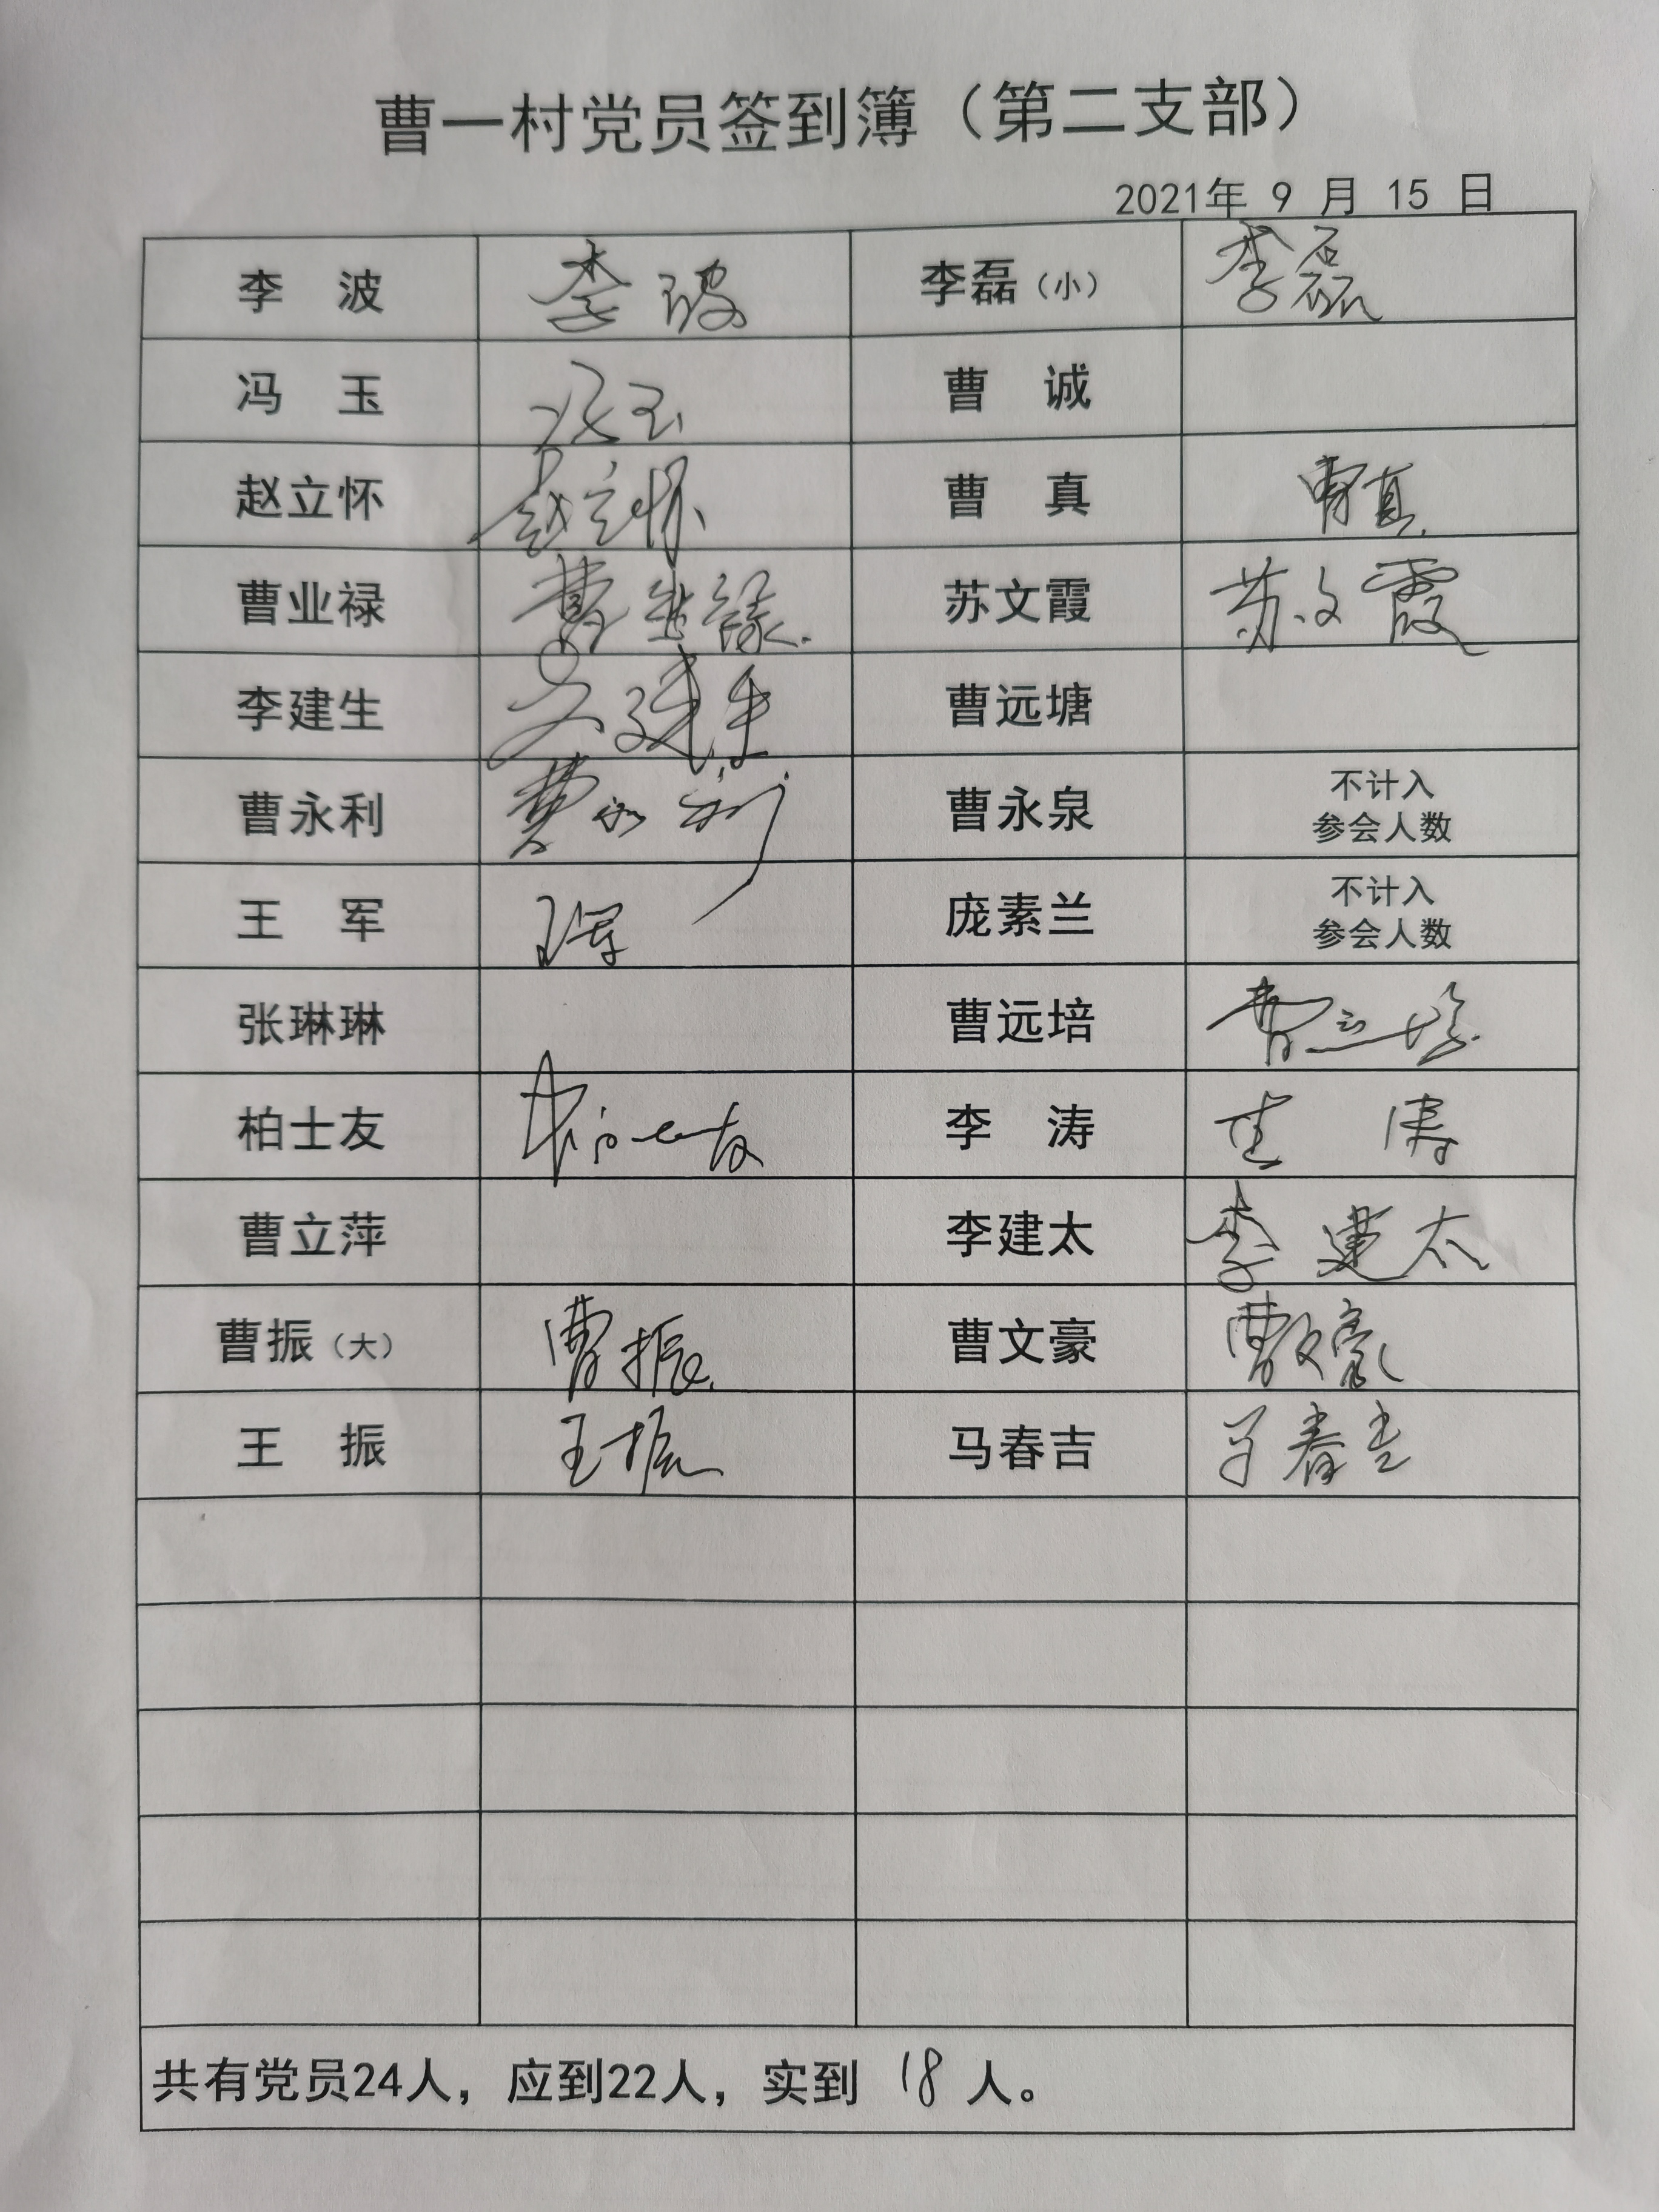 曹一村党员签到簿（第二支部）
2021年 9 月 15 日
李 波 李波 李磊（小） 李磊
冯 玉 冯玉 曹 诚
赵立怀 赵立怀 曹 真 曹真
曹业禄 曹业禄 苏文霞 苏文霞
李建生 李建生 曹远塘
曹永利 曹永利 曹永泉 不计入
参会人数
王 军 王军 庞素兰 不计入
参会人数
张琳琳 曹远培 曹远培
柏士友 柏士友 李 涛 李涛
曹立萍 李建太 李建太
曹振（大） 曹振 曹文豪 曹文豪
王 振 王振 马春吉 马春吉
共有党员24人，应到22人，实到 18 人。